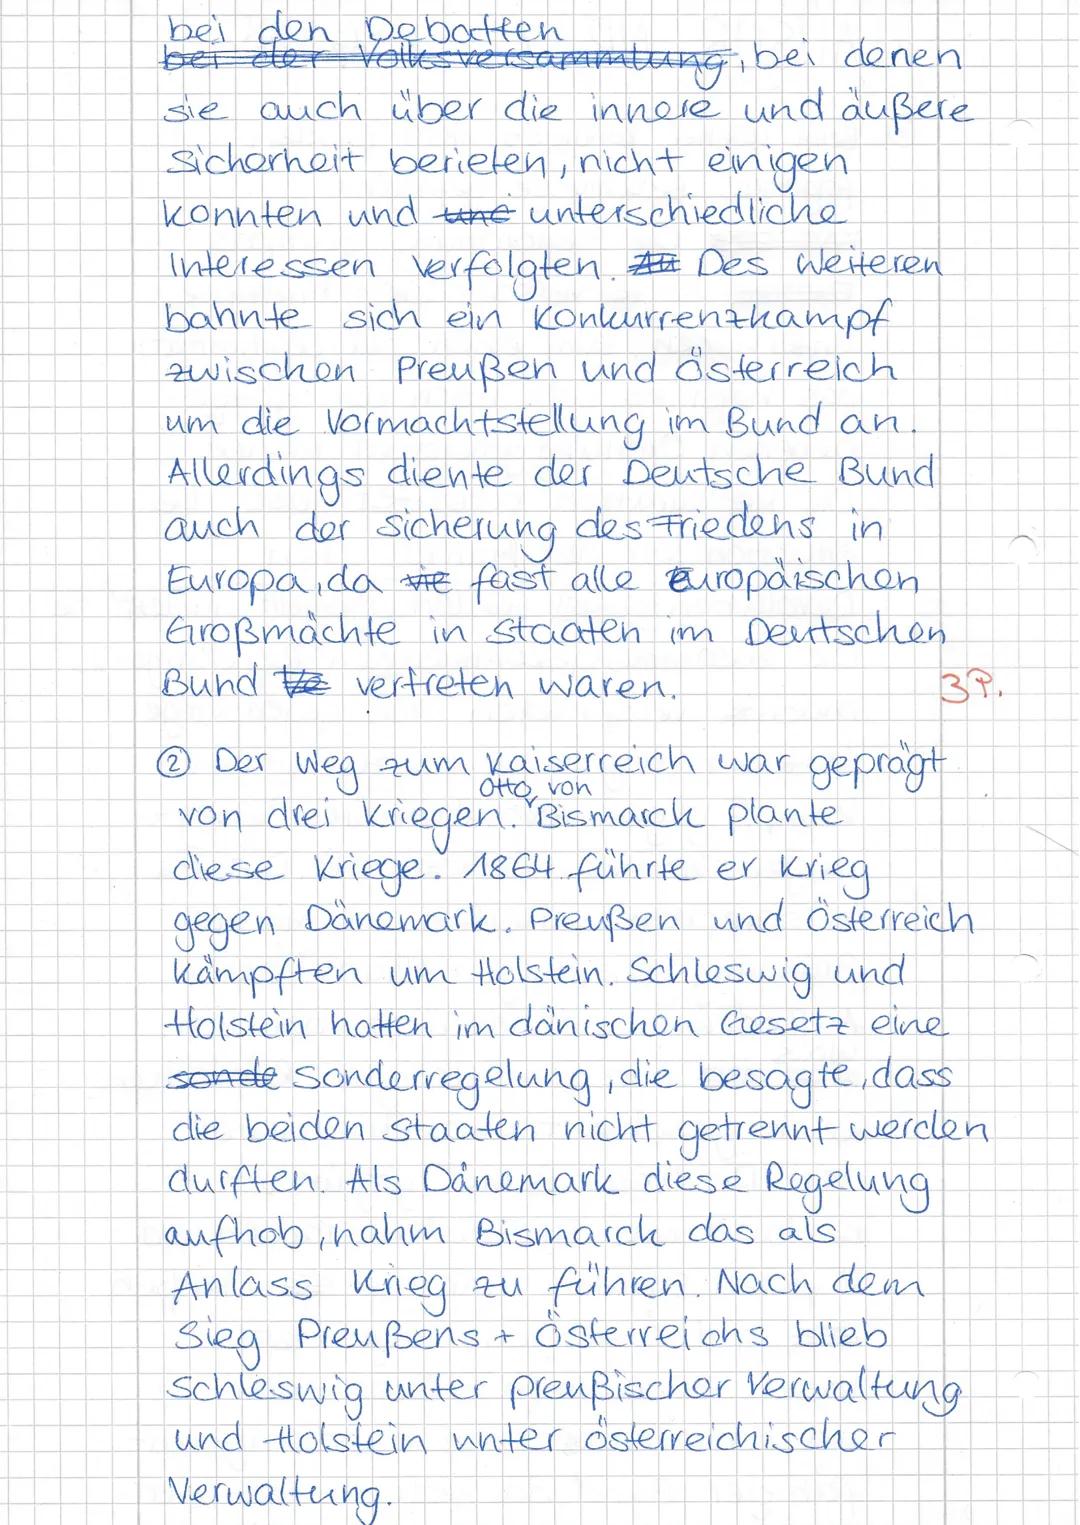 bei den Debatten
bei der Volksversammlung, bei denen
sie auch über die innere und äußere
Sicherheit berieten, nicht einigen
konnten und une unterschiedliche
Interessen verfolgten. Au Des Weiteren
bahnte sich ein Konkurrenzkampf
zwischen Preußen und Österreich
um die Vormachtstellung im Bund an.
Allerdings diente der Deutsche Bund
auch der Sicherung des Friedens in
Europa, da vie fast alle europäischen
Großmächte in Staaten im Deutschen
Bund ve vertreten waren. 3P.
② Der Weg zum Kaiserreich war geprägt
Otto von
von drei Kriegen. Bismarck plante
diese Kriege. 1864 führte er Krieg
gegen Dänemark. Preußen und Österreich
kämpften um Holstein. Schleswig und
Holstein hatten im dänischen Gesetz eine
sonde Sonderregelung, die besagte, dass
die beiden Staaten nicht getrennt werden
durften. Als Dänemark diese Regelung
aufhob, nahm Bismarck das als
Anlass Krieg zu führen. Nach dem
Sieg Preußens + Österreichs blieb
Schleswig unter preußischer Verwaltung
und Holstein unter österreichischer
Verwaltung.